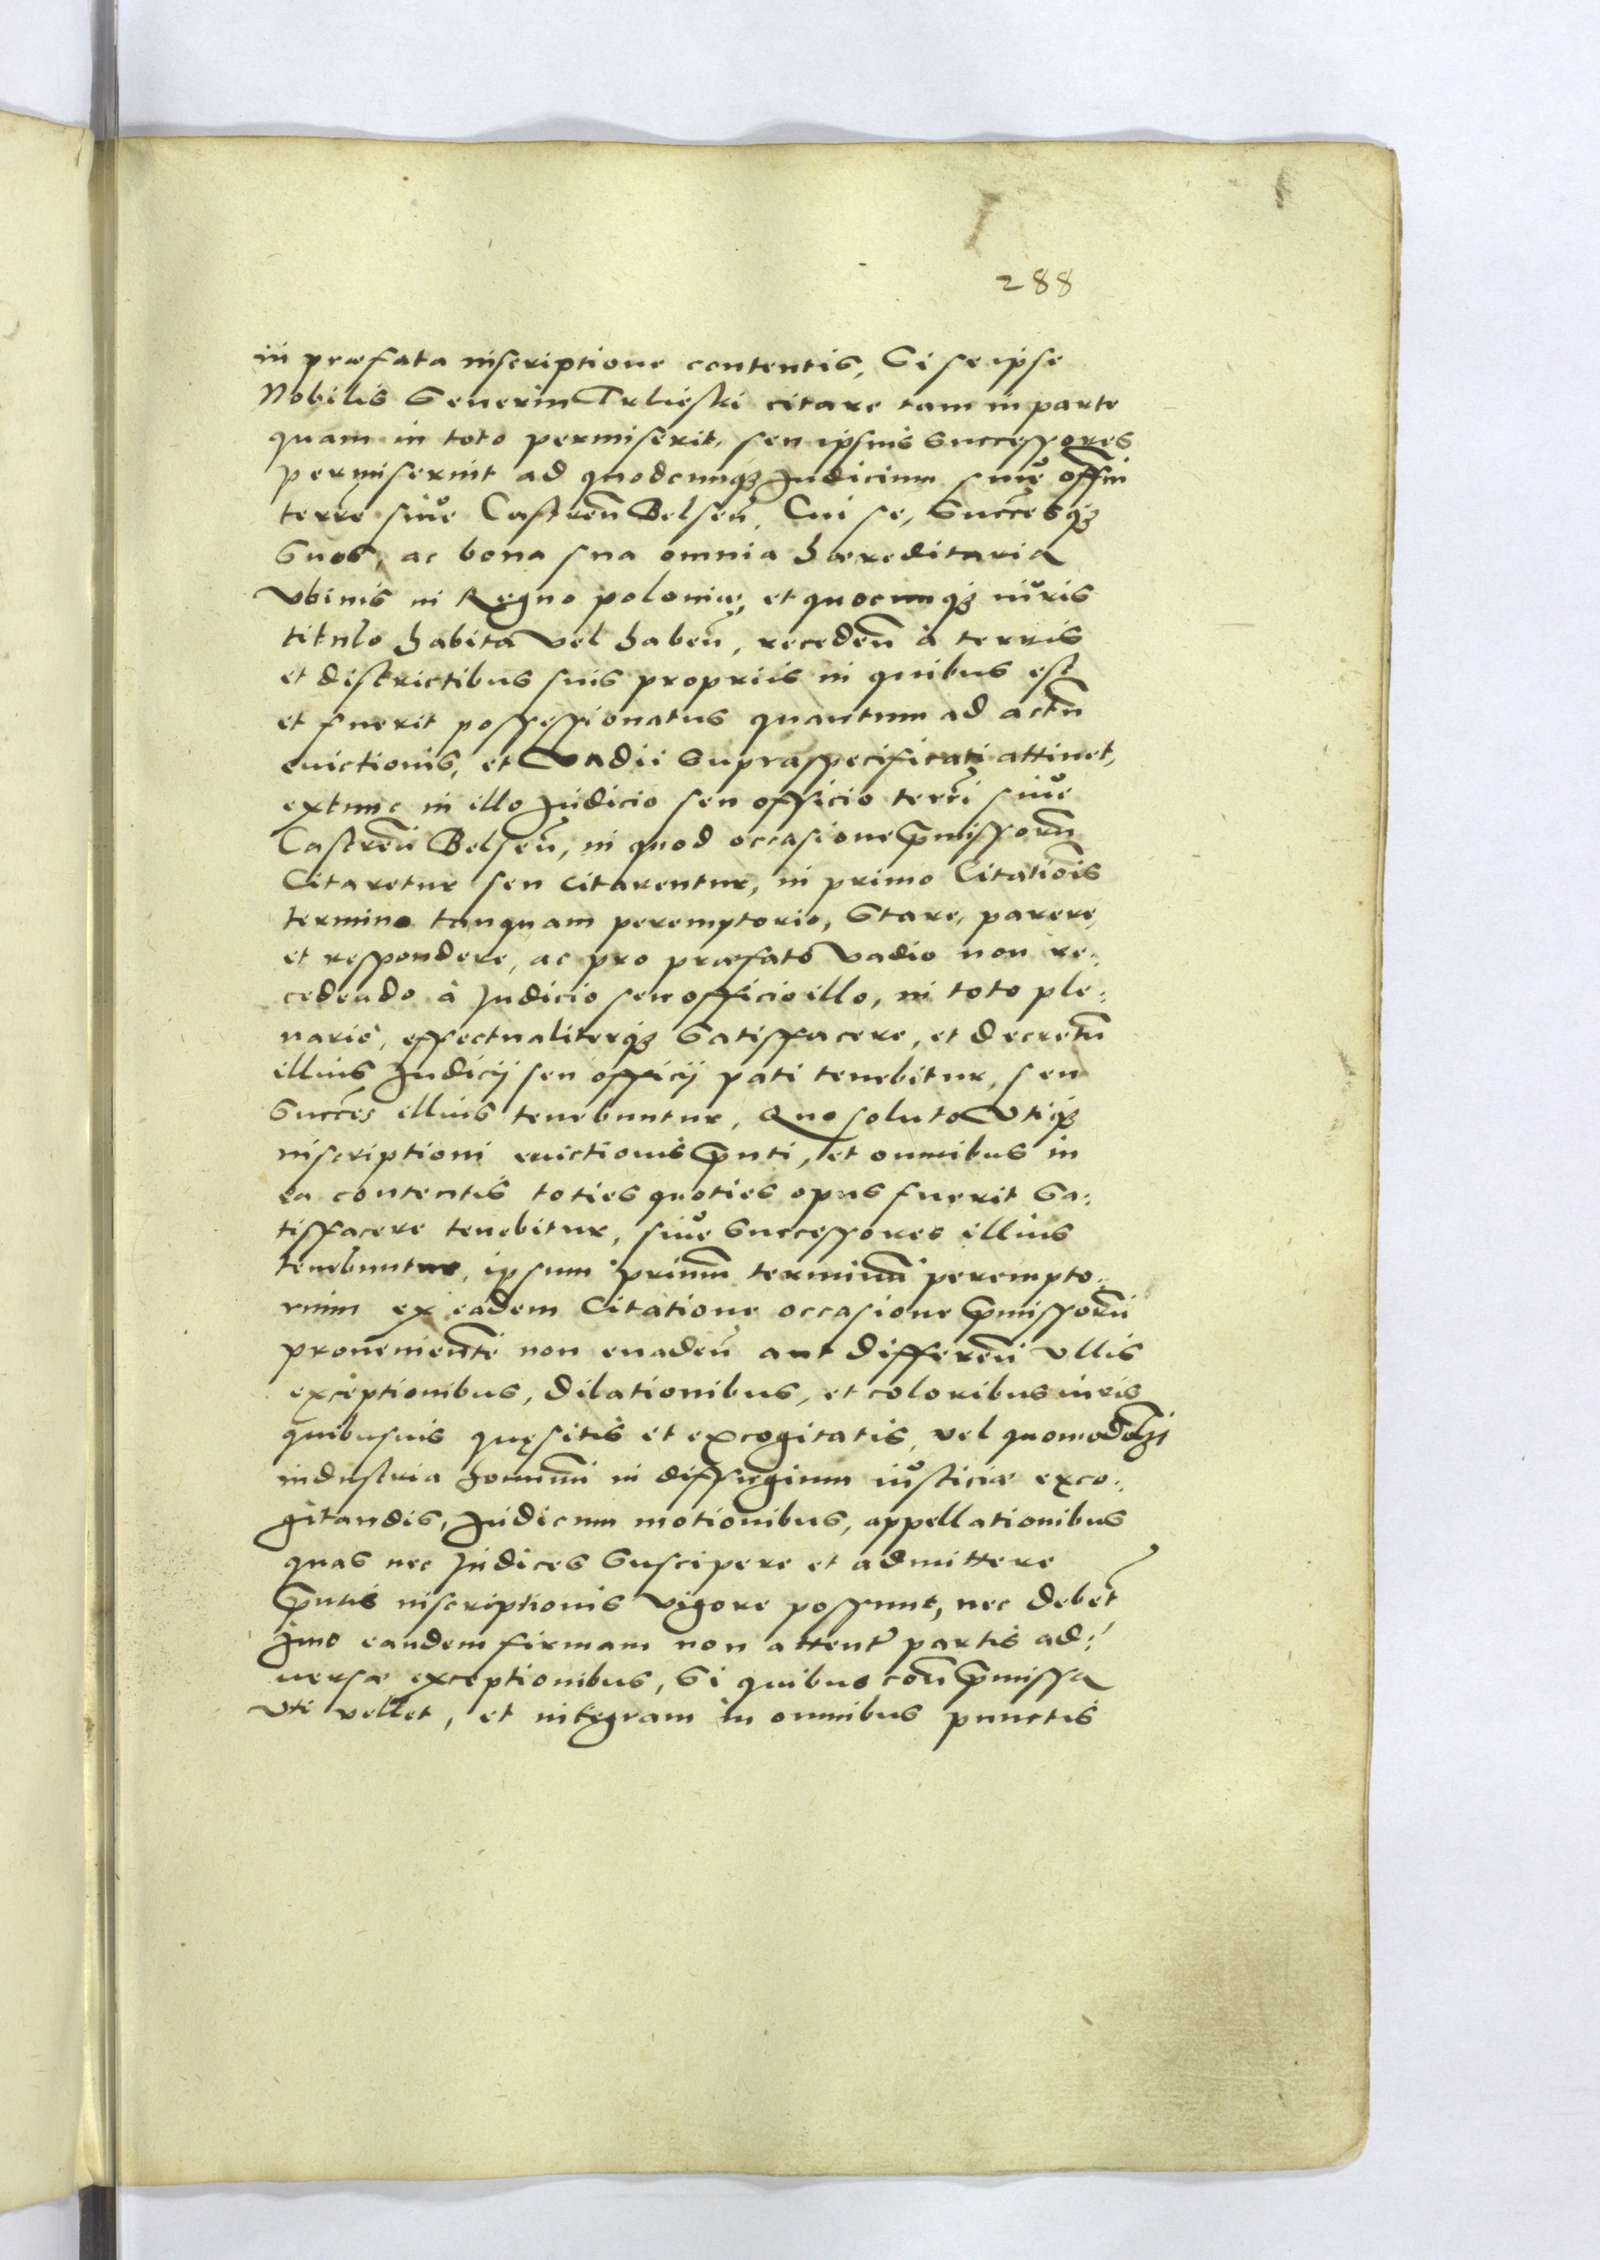 288
in præfata inscriptione contentis, Si se ipse
Nobilis Severin Trlieski citare tam in parte
quam in toto permiserit, seu ipsius Successores
permiserint ad quodcunq; Judicium siue offin
terre siue Castreñ Belseñ, Cui se, Succesq;
Suos, ac bona sua omnia hæreditaria
vbiuis in Regno poloniæ, et quocunq; iuris
titulo habita vel habeñ, recedeñ à terris
et districtibus suis propriis in quibus est
et fuerit possessionatus quantum ad actũ
euictionis, et Vadii Supraspecificati attinet,
extunc in illo Judicio seu officio terri siue
Castreñ Belseñ, in quod occasione pmissorũ
Citaretur seu citarentur, in primo Citatiõis
termino tanquam peremptorio, Stare, parere,
et respondere, ac pro præfato vadio non re:
cedendo à Judicio seu officio illo, in toto ple:
narie, effectualiterq; Satisfacere, et decretũ
illius Judicij seu officij pati tenebitur, seu
Succes illius tenebuntur, Quo soluto vtiq;
inscriptioni euictionis pnti, et omnibus in
ea contentis toties quoties opus fuerit Sa:
tisfacere tenebitur, siue Successores illius
tenebuntur, ipsum primũ terminũ perempto:
rium ex eadem Citatione occasione pmissorũ
prouenientẽ non euadeñ aut differeñ vllis
exceptionibus, dilationibus, et coloribus iuris
quibusuis quęsitis et excogitatis, vel quomodolzt
industria hominũ in diffugium iusticiæ exco:
gitandis, Judicum motionibus, appellationibus
quas nec Judices Suscipere et admittere
pntis inscriptionis vigore possunt, nec debet
Jmo eandem firmam non attent partis ad:
uersæ exceptionibus, Si quibus coñ pmissa
vti vellet, et integram in omnibus punctis